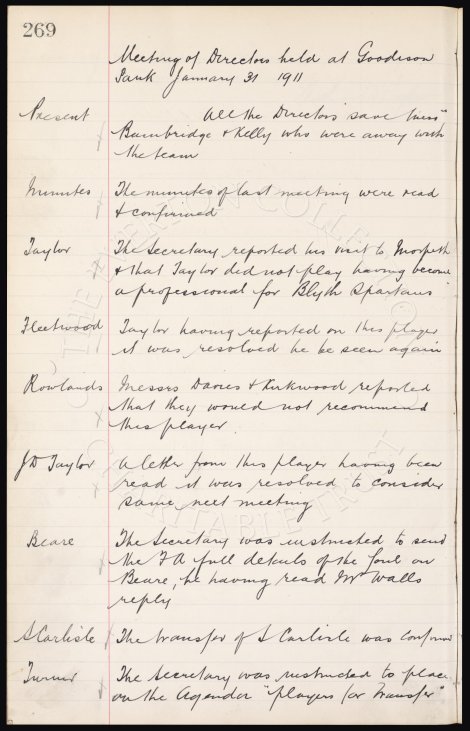 269
Meeting of Directors held at Goodison
Park January 31 1911
Present
All the Directors save Messrs
Bainbridge & Kelly who were away with
the team
Minutes The minutes of last meeting were read
& confirmed
Taylor The Secretary reported his visit to Morpeth
& that Taylor did not play having become
a professional for Blyth Spartans
Fleetwood Taylor having reported on this player
it was resolved he be seen again
Rowlands Messrs Davies & Kirkwood reported
that they would not recommend
this player.
JD Taylor A letter from this player having been
read it was resolved to consider
same next meeting
Beare The Secretary was instructed to send
the F A full details of the foul on
Beare, he having read Mr Walls
reply
S Carlisle The transfer of S Carlisle was confirmed
Turner The Secretary was instructed to place
on the Agenda "players for Transfer"
THE EVERTON COLLECTION
CHARITABLE TRUST